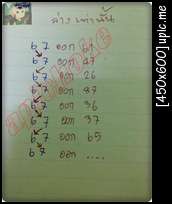 ล่าง เท่านั้น
67 ออก 61
67 ออก 47
67 ออก 26
67 ออก 87
67 ออก 36
67 ออก 37
67 ออก 65
67 ออก ....
[450x600] upic.me